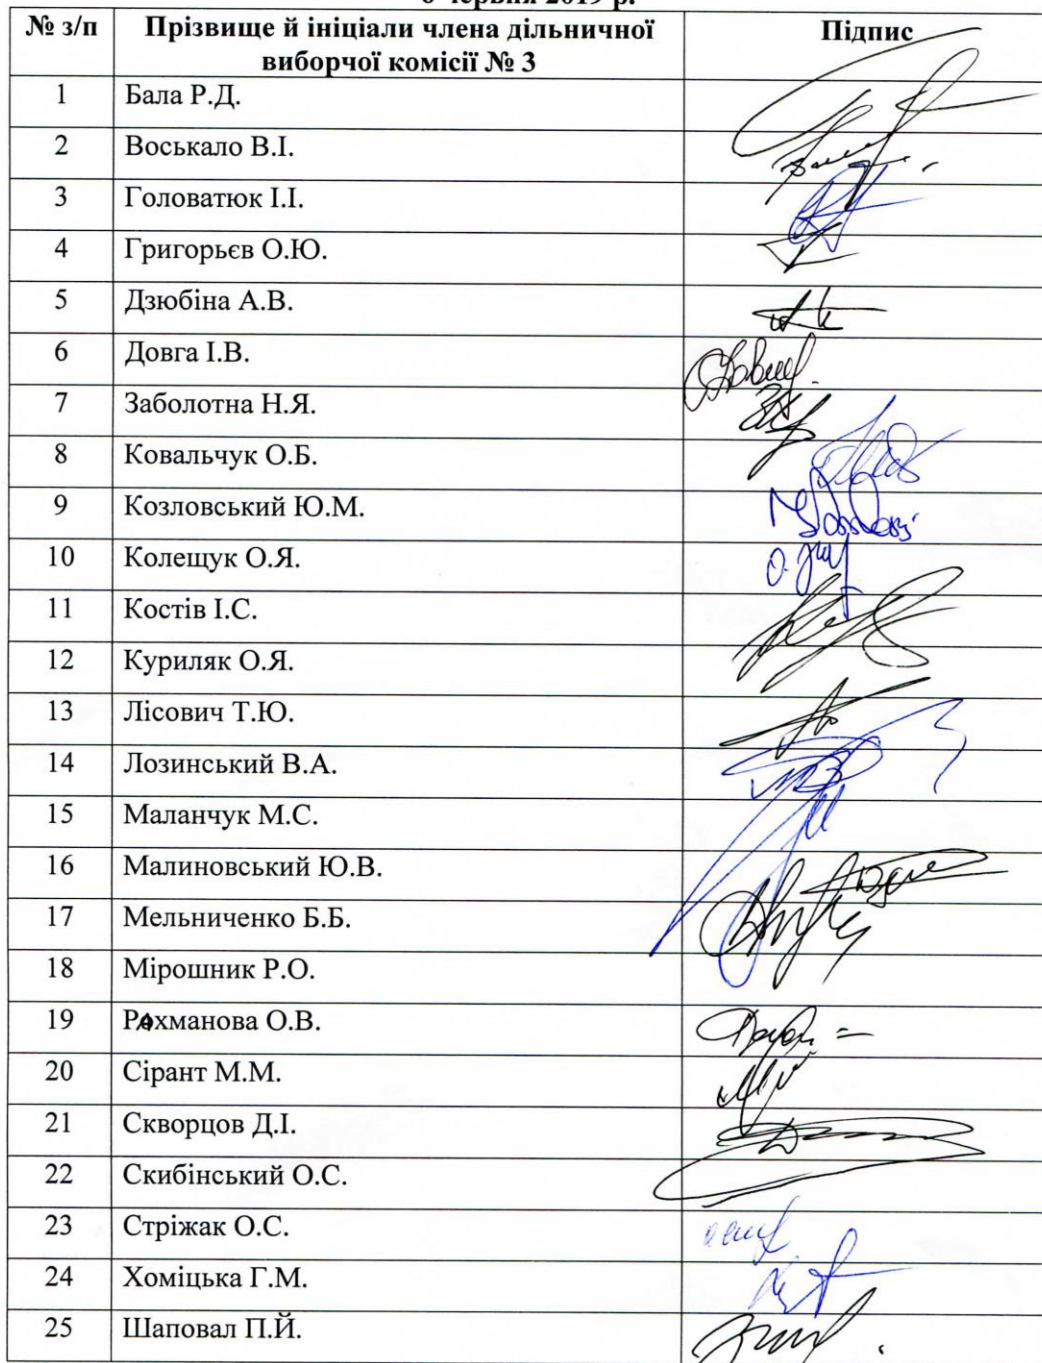 6 червня 2019 р.
№ з/п Прізвище й ініціали члена дільничної виборчої комісії № 3 Підпис
1 Бала Р.Д.
2 Воськало В.І.
3 Головатюк І.І.
4 Григорьєв О.Ю.
5 Дзюбіна А.В.
6 Довга І.В.
7 Заболотна Н.Я.
8 Ковальчук О.Б.
9 Козловський Ю.М.
10 Колещук О.Я.
11 Костів І.С.
12 Куриляк О.Я.
13 Лісович Т.Ю.
14 Лозинський В.А.
15 Маланчук М.С.
16 Малиновський Ю.В.
17 Мельниченко Б.Б.
18 Мірошник Р.О.
19 Рахманова О.В.
20 Сірант М.М.
21 Скворцов Д.І.
22 Скибінський О.С.
23 Стріжак О.С.
24 Хоміцька Г.М.
25 Шаповал П.Й.